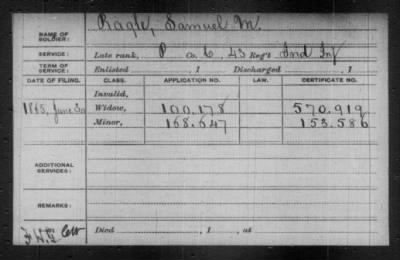 NAME OF SOLDIER: Ragle, Samuel M.
SERVICE: Late rank, P Co. C, 43 Reg't Ind Inf
TERM OF SERVICE: Enlisted , 1 Discharged , 1
DATE OF FILING. CLASS. APPLICATION NO. LAW. CERTIFICATE NO.
Invalid,
1865, June Widow, 100.178 570.919
Minor, 168.647 153.586
ADDITIONAL SERVICES:
REMARKS:
Died , 1 , at